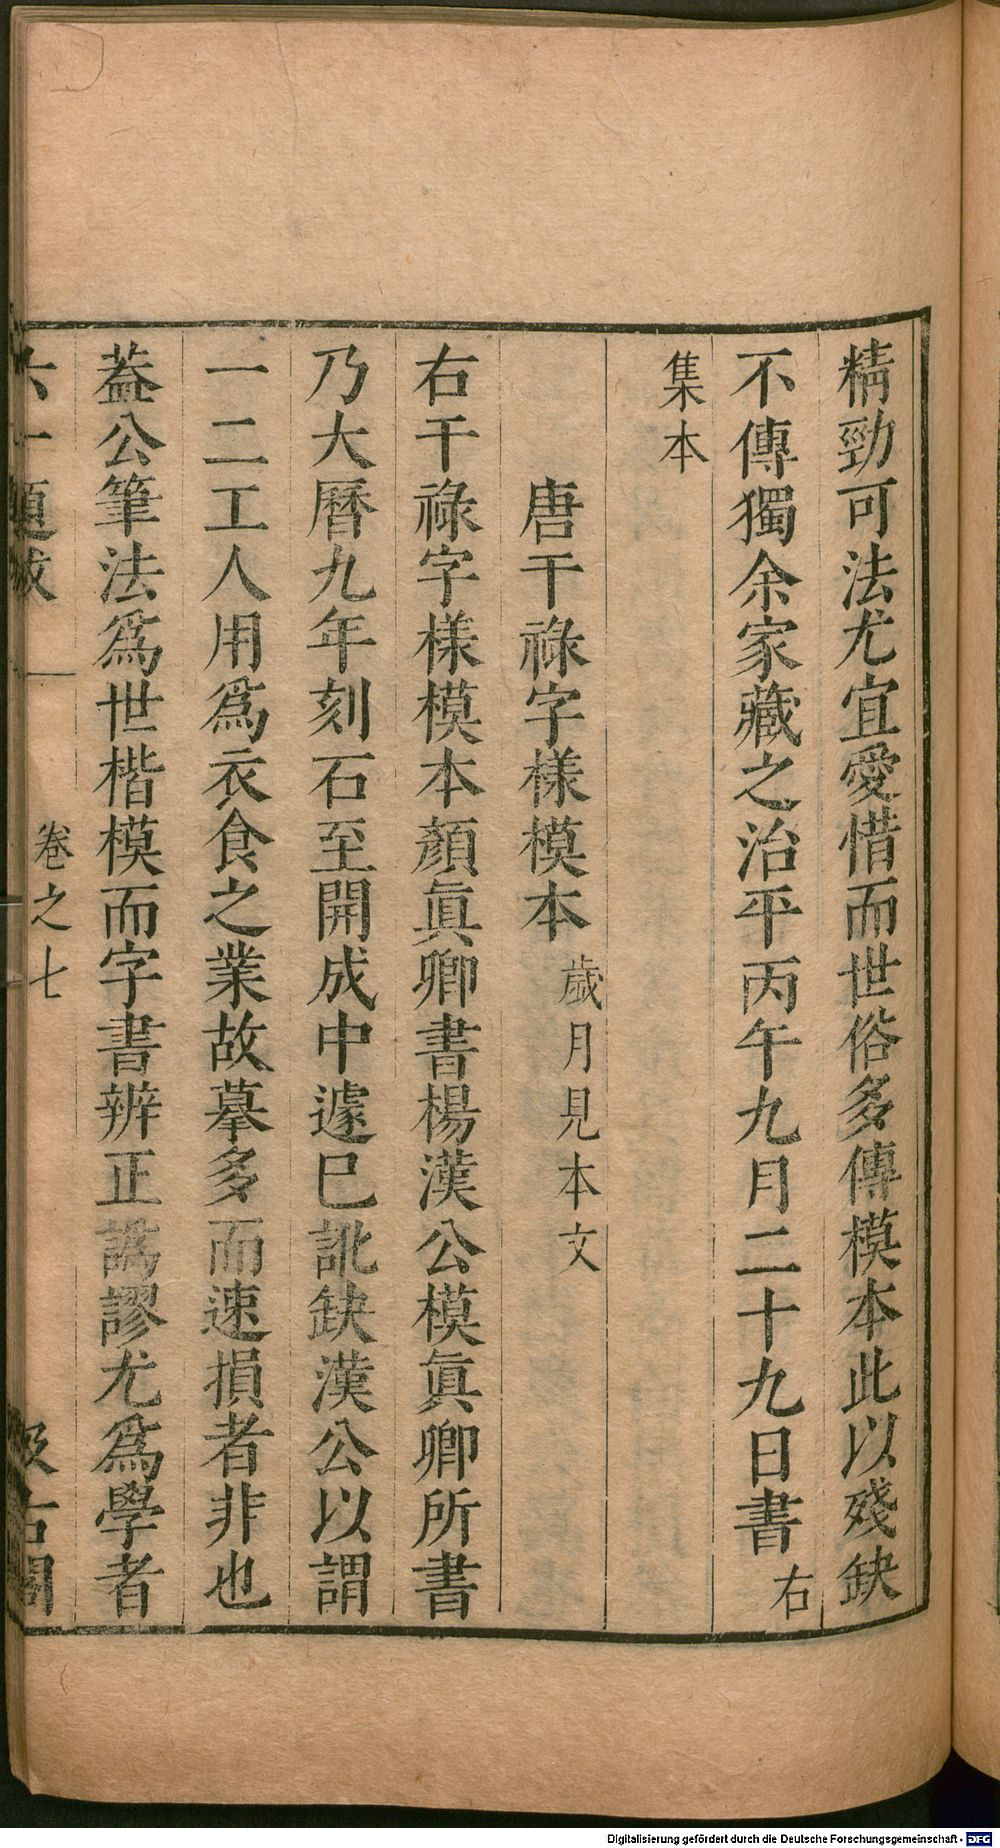 精勁可法尤宜愛惜而世俗多傳模本此以殘缺
不傳獨余家藏之治平丙午九月二十九日書右
集本
唐干祿字樣模本歲月見本文
右干祿字樣模本顏眞卿書楊漢公模眞卿所書
乃大曆九年刻石至開成中遽已訛缺漢公以謂
一二工人用爲衣食之業故摹多而速損者非也
葢公筆法爲世楷模而字書辨正譌謬尤爲學者
六一題跋 卷之七 汲古閣
Digitalisierung gefördert durch die Deutsche Forschungsgemeinschaft - DFG